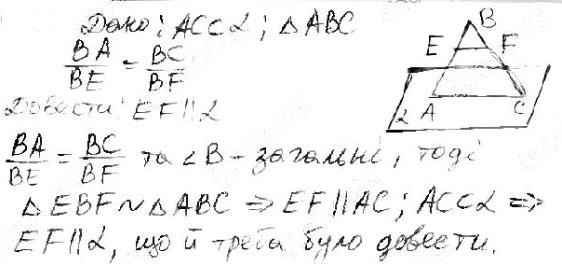 Дано: AC⊂α; △ABC
BA/BE = BC/BF
Довести: EF∥α
BA/BE = BC/BF та ∠B – загальні, тоді
△EBF ~ △ABC ⇒ EF∥AC; AC⊂α ⇒
EF∥α, що й треба було довести.
B
E F
A C
α